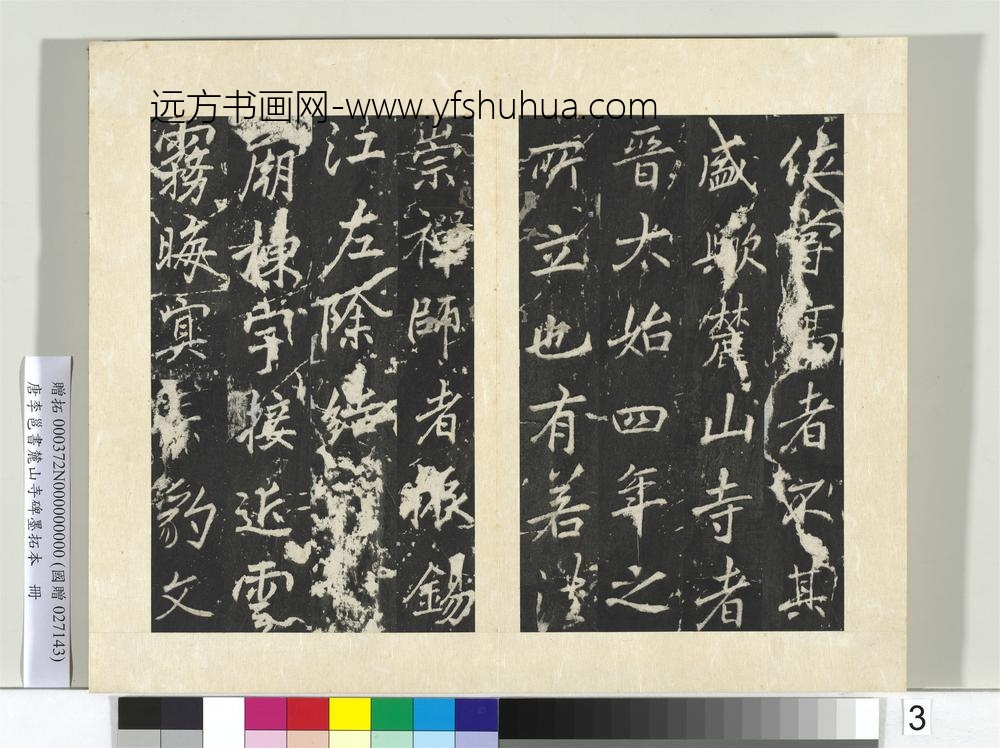 远方书画网-www.yfshuhua.com
嘗高者不其
盛歟麓山寺者
晉太始四年之
所立也有若法
崇禪師者振錫
江左除結
廟棟宇接近雲
霧晦冥赤豹文
贈拓 000372N000000000 (國贈 027143)
唐李邕書麓山寺碑墨拓本 冊
3